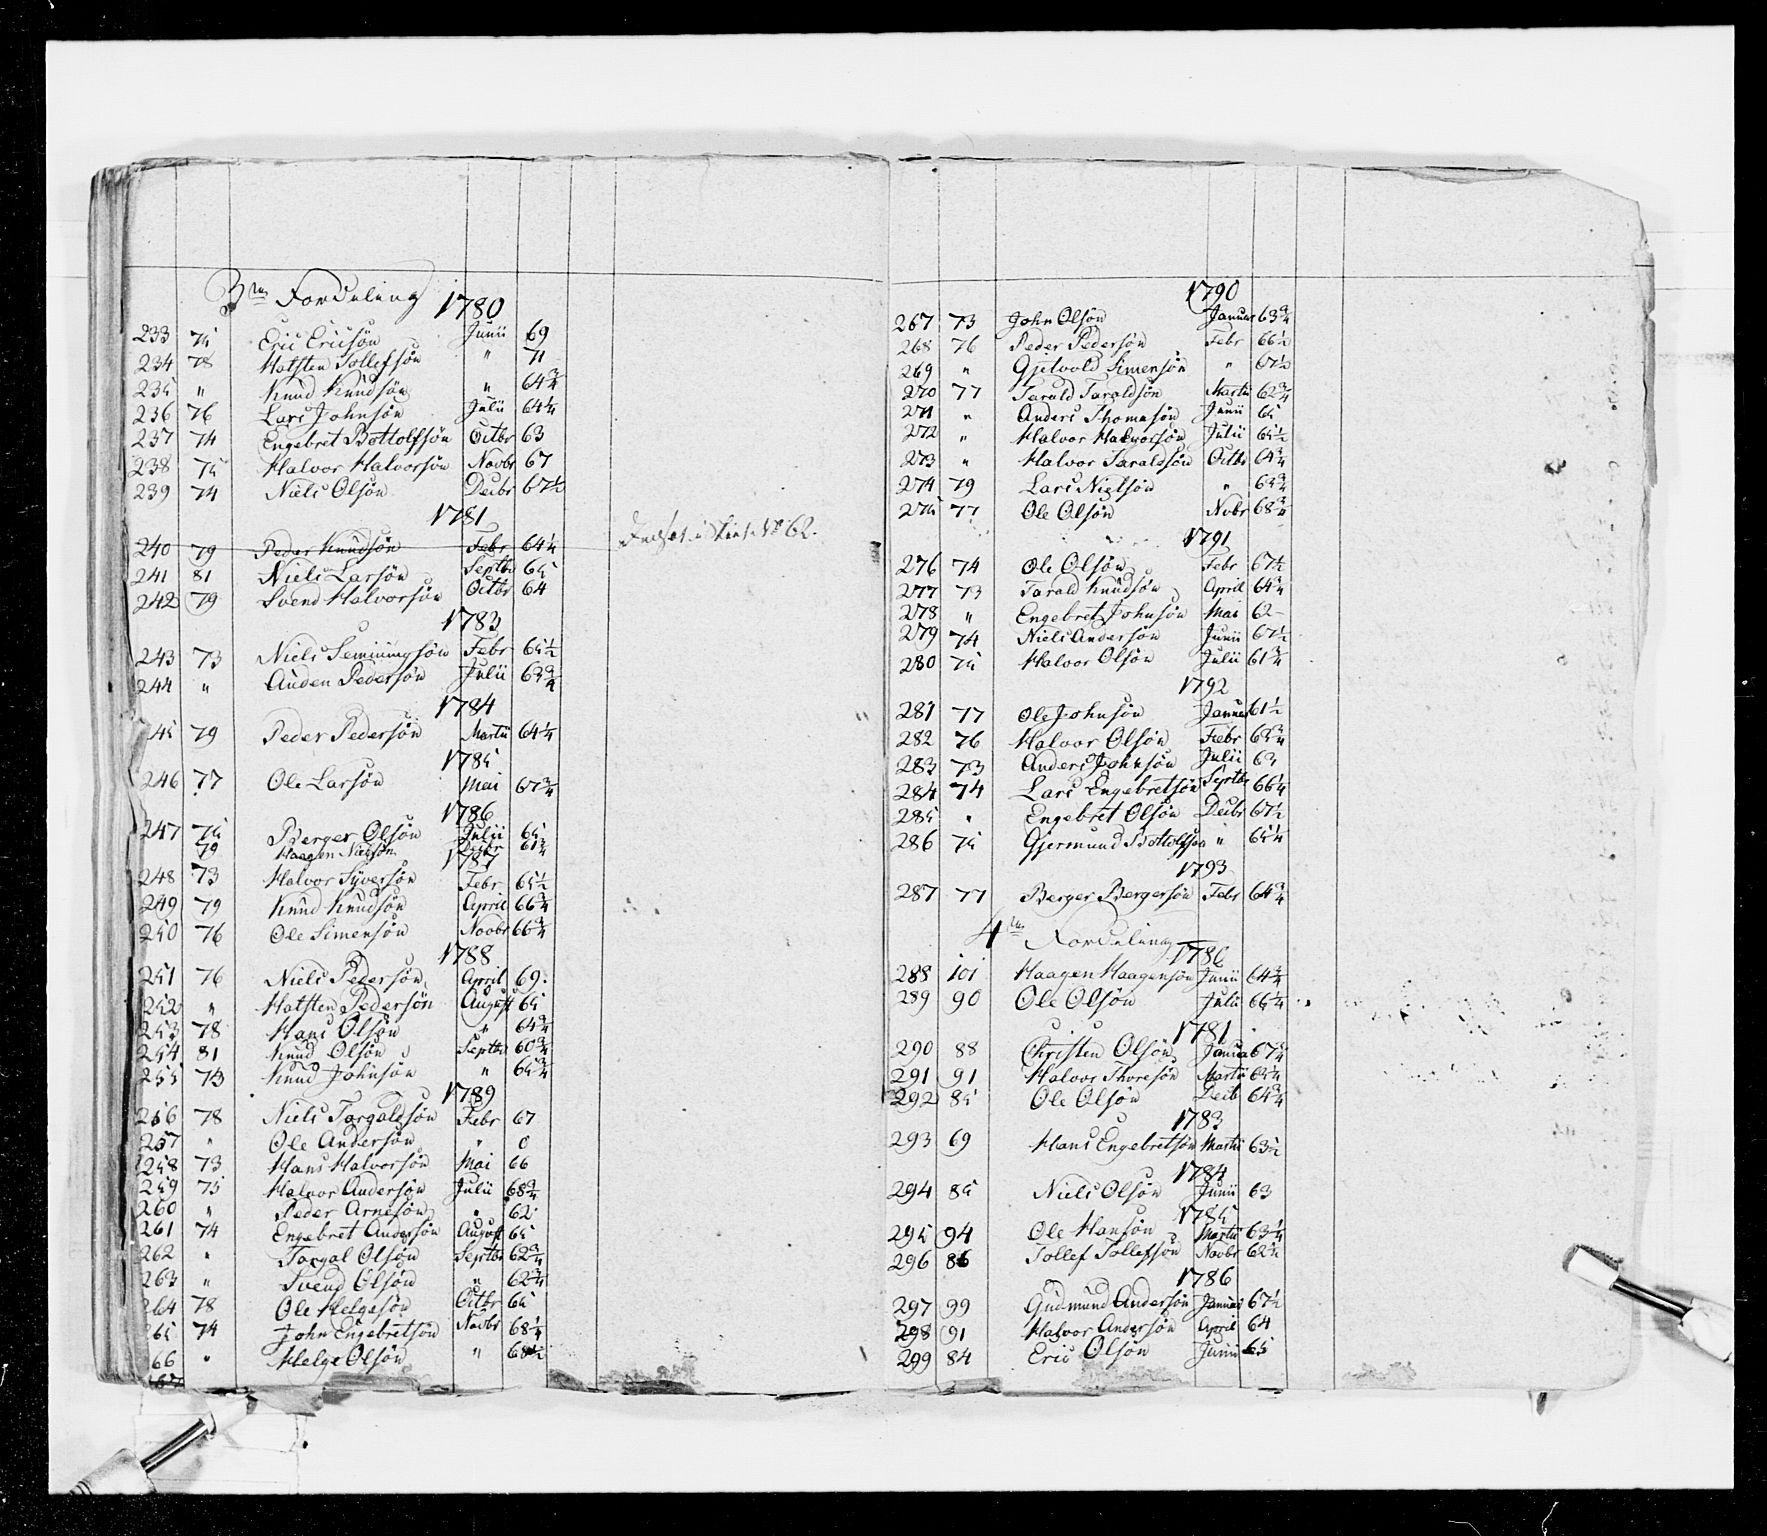 3die Fordeling 1780
233 75 Eric Ericsön Junii 69
234 78 Hotsten Tollefsön " 71
235 " Knud Knudsön " 64 3/4
236 76 Lars Johnsön Julii 64 1/4
237 74 Engebret Bottolfsön Octbr 63
238 75 Halvor Halvorsön Novbr 67
239 74 Niels Olsön Decbr 67 1/2
1781
240 79 Peder Knudsön Febr 64 1/4 No 62.
241 81 Niels Larsön Septbr 65
242 79 Svend Halvorsön Octbr 64
1783
243 73 Niels Semmingsön Febr 65 1/2
244 " Auden Pedersön Julii 63 3/4
1784
45 79 Peder Pedersön Martii 64 1/4
1785
246 77 Ole Larsön Mai 67 3/4
1786
247 75 Berger Olsön Julii 65
79 Haagen Nielsön Decbr 61 3/4
1787
248 73 Halvor Syversön Febr 65 1/2
249 79 Knud Knudsön April 66 3/4
250 76 Ole Simensön Novbr 66 3/4
1788
251 76 Niels Pedersön April 69
252 " Hotsten Pedersön August 65
253 78 Hans Olsön " 64 3/4
254 81 Knud Olsön Septbr 60 3/4
255 73 Knud Johnsön " 65 3/4
1789
256 78 Niels Torgalsön Febr 67
257 " Ole Andersön " 0
258 73 Hans Halvorsön Mai 66
259 75 Halvor Andersön Julii 68 3/4
260 " Peder Arnesön " 62
261 74 Engebret Andersön August 65
262 " Torgal Olsön Septbr 62 3/4
263 " Svend Olsön " 62 3/4
264 78 Ole Helgesön Octbr 65
265 74 John Engebretsön Novbr 68 1/4
66 " Helge Olsön " 68 1/2
1790
267 73 John Olsön Januar 63 3/4
268 76 Peder Pedersön Febr 66 1/2
269 " Gjetvold Simensön " 67 1/2
270 77 Tarald Taraldsön Martii 62 3/4
271 " Anders Thomasön Junii 65
272 " Halvor Halvorsön Julii 65 1/2
273 " Halvor Taraldsön Octbr 64 3/4
274 79 Lars Nielsön " 65 3/4
275 77 Ole Olsön Novbr 68 3/4
1791
276 74 Ole Olsön Febr 67 1/2
277 73 Tarald Knudsön April 64 3/4
278 " Engebret Johnsön Mai 62
279 74 Niels Andersön Junii 67 1/2
280 75 Halvor Olsön Julii 61 3/4
1792
281 77 Ole Johnsön Januar 61 1/2
282 76 Halvor Olsön Febr 65 3/4
283 73 Anders Johnsön Julii 63
284 74 Lars Engebretsön Septbr 66 1/4
285 " Engebret Olsön Decbr 67 1/2
286 75 Gjermund Bottolfsön " 65 1/4
1793
287 77 Berger Bergersön Febr 64 3/4
4de Fordeling
1786
288 101 Haagen Haagensön Junii 64 3/4
289 90 Ole Olsön Julii 66 1/4
1781
290 88 Christen Olsön Janua 67 1/4
291 91 Halvor Thoresön Martii 65 1/4
292 85 Ole Olsön Decb 64 3/4
1783
293 69 Hans Engebretsön Martii 63 1/2
1784
294 85 Niels Olsön Junii 63
1785
295 94 Ole Hansön Martii 63 1/4
296 86 Tollef Tollefsön Novbr 62 1/2
1786
297 99 Gudmund Andersön Januar 67 1/2
298 91 Halvor Andersön April 64
299 84 Eric Olsön Junii 65